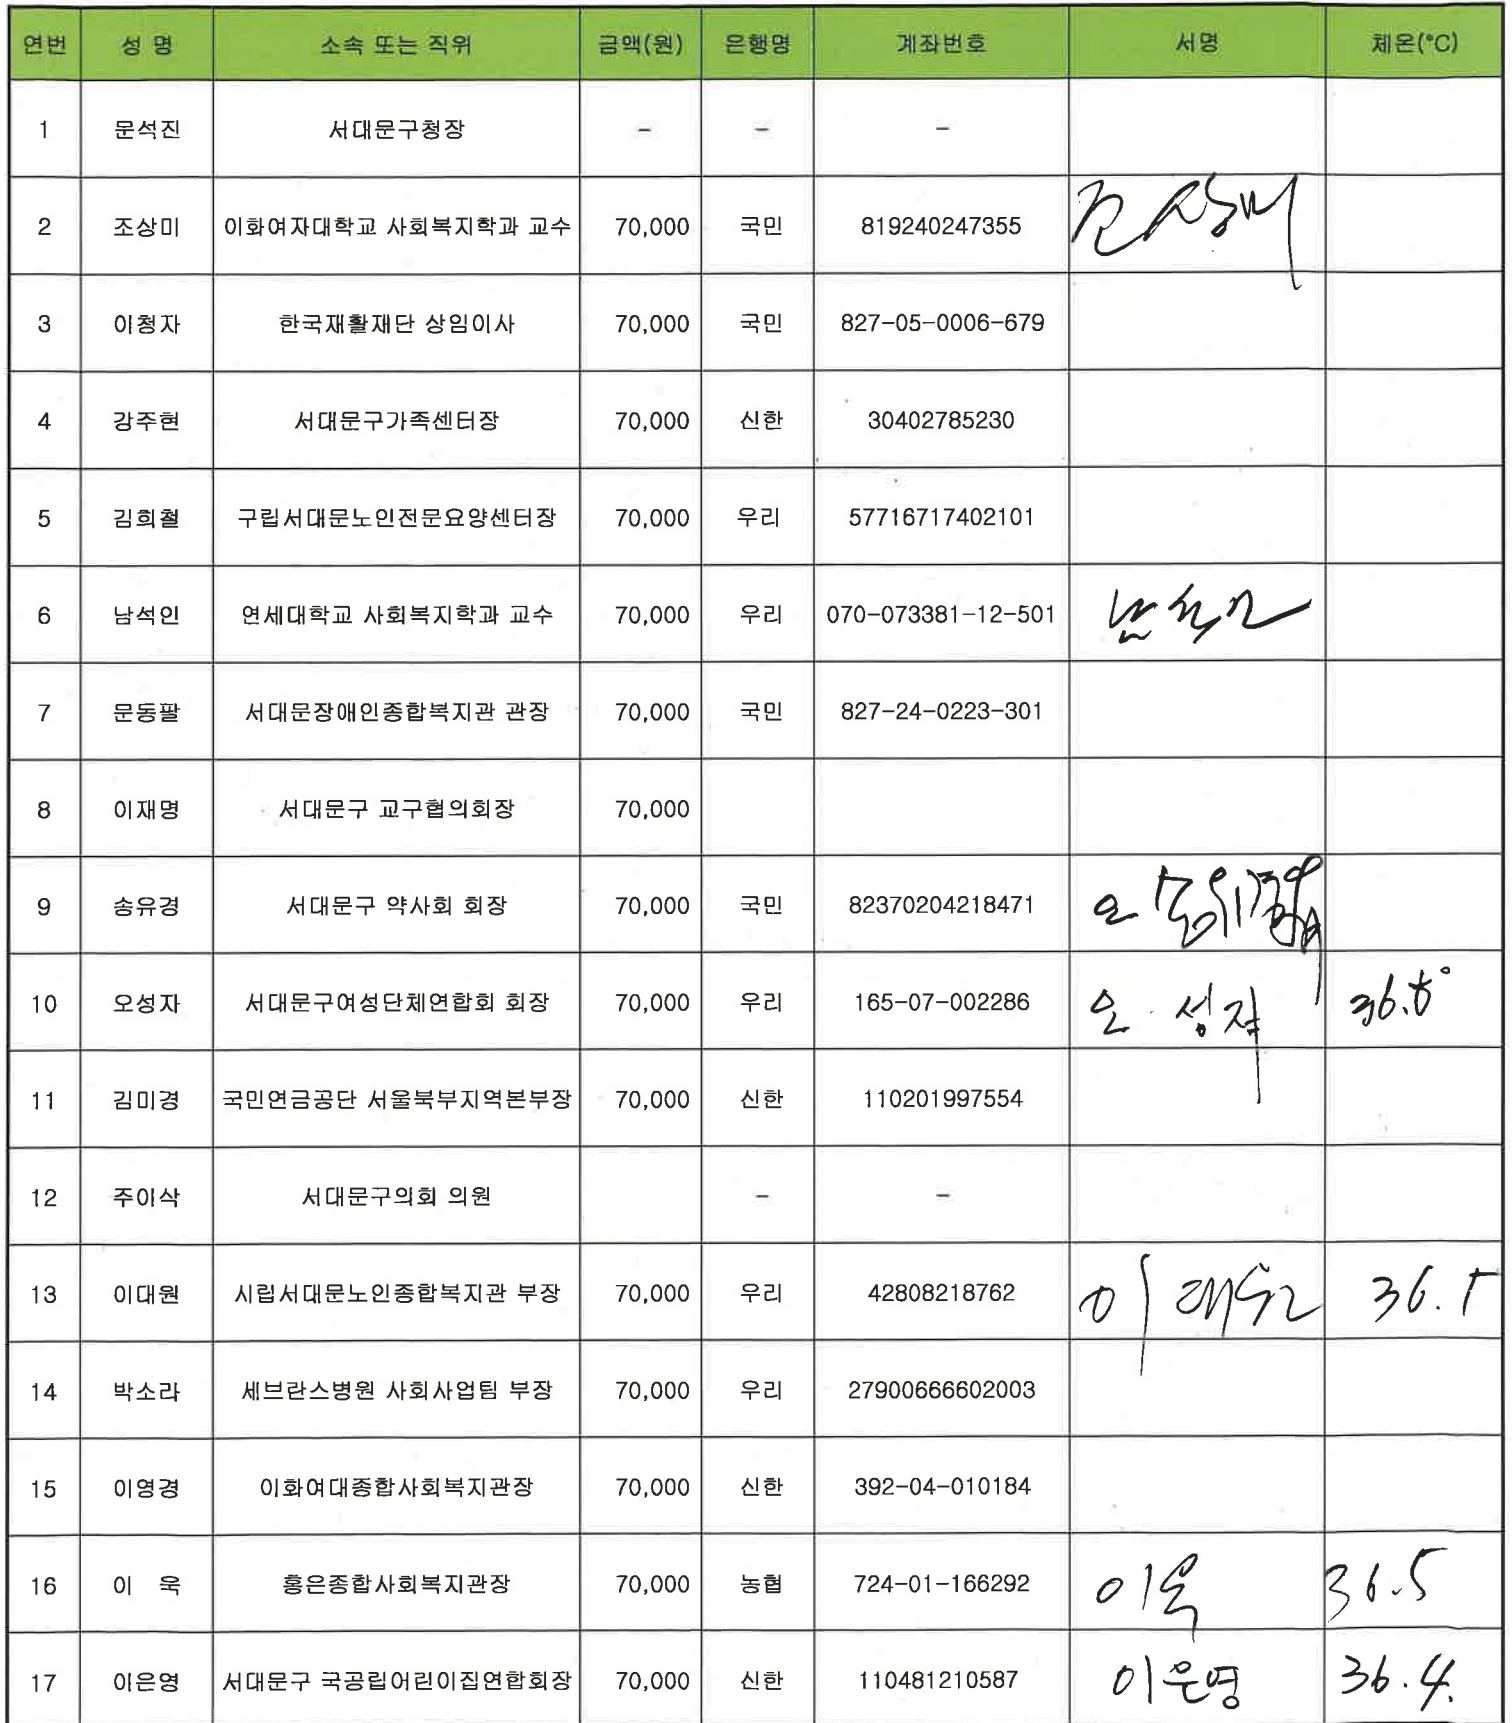 연번 성 명 소속 또는 직위 금액(원) 은행명 계좌번호 서명 체온(°C)
1 문석진 서대문구청장 - - -
2 조상미 이화여자대학교 사회복지학과 교수 70,000 국민 819240247355 조상미
3 이청자 한국재활재단 상임이사 70,000 국민 827-05-0006-679
4 강주현 서대문구가족센터장 70,000 신한 30402785230
5 김희철 구립서대문노인전문요양센터장 70,000 우리 57716717402101
6 남석인 연세대학교 사회복지학과 교수 70,000 우리 070-073381-12-501 남석인
7 문동팔 서대문장애인종합복지관 관장 70,000 국민 827-24-0223-301
8 이재명 서대문구 교구협의회장 70,000
9 송유경 서대문구 약사회 회장 70,000 국민 82370204218471 송유경
10 오성자 서대문구여성단체연합회 회장 70,000 우리 165-07-002286 오 성자
11 김미경 국민연금공단 서울북부지역본부장 70,000 신한 110201997554
12 주이삭 서대문구의회 의원 - -
13 이대원 시립서대문노인종합복지관 부장 70,000 우리 42808218762 이대원
14 박소라 세브란스병원 사회사업팀 부장 70,000 우리 27900666602003
15 이영경 이화여대종합사회복지관장 70,000 신한 392-04-010184
16 이 욱 홍은종합사회복지관장 70,000 농협 724-01-166292 이욱 36.5
17 이은영 서대문구 국공립어린이집연합회장 70,000 신한 110481210587 이은영 36.4